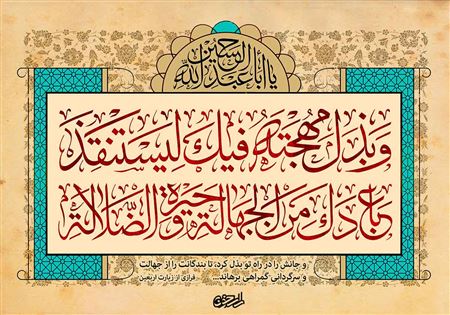 یا أبا عبدالله الحسین
وَبَذَلَ مُهْجَتَهُ فيكَ لِيَسْتَنْقِذَ
عِبادَكَ مِنَ الْجَهالَةِ وَحَيْرَةِ الضَّلالَةِ
و جانش را در راه تو بذل کرد، تا بندگانت را از جهالت
و سرگردانی گمراهی برهاند... فرازی از زیارت اربعین